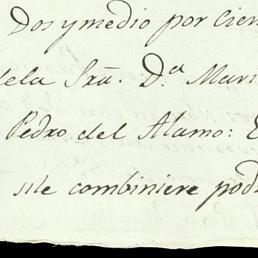 Dos y medio por Cien
dela Sra. D.a Mari
Pedro del Alamo: E
sile combiniere pod